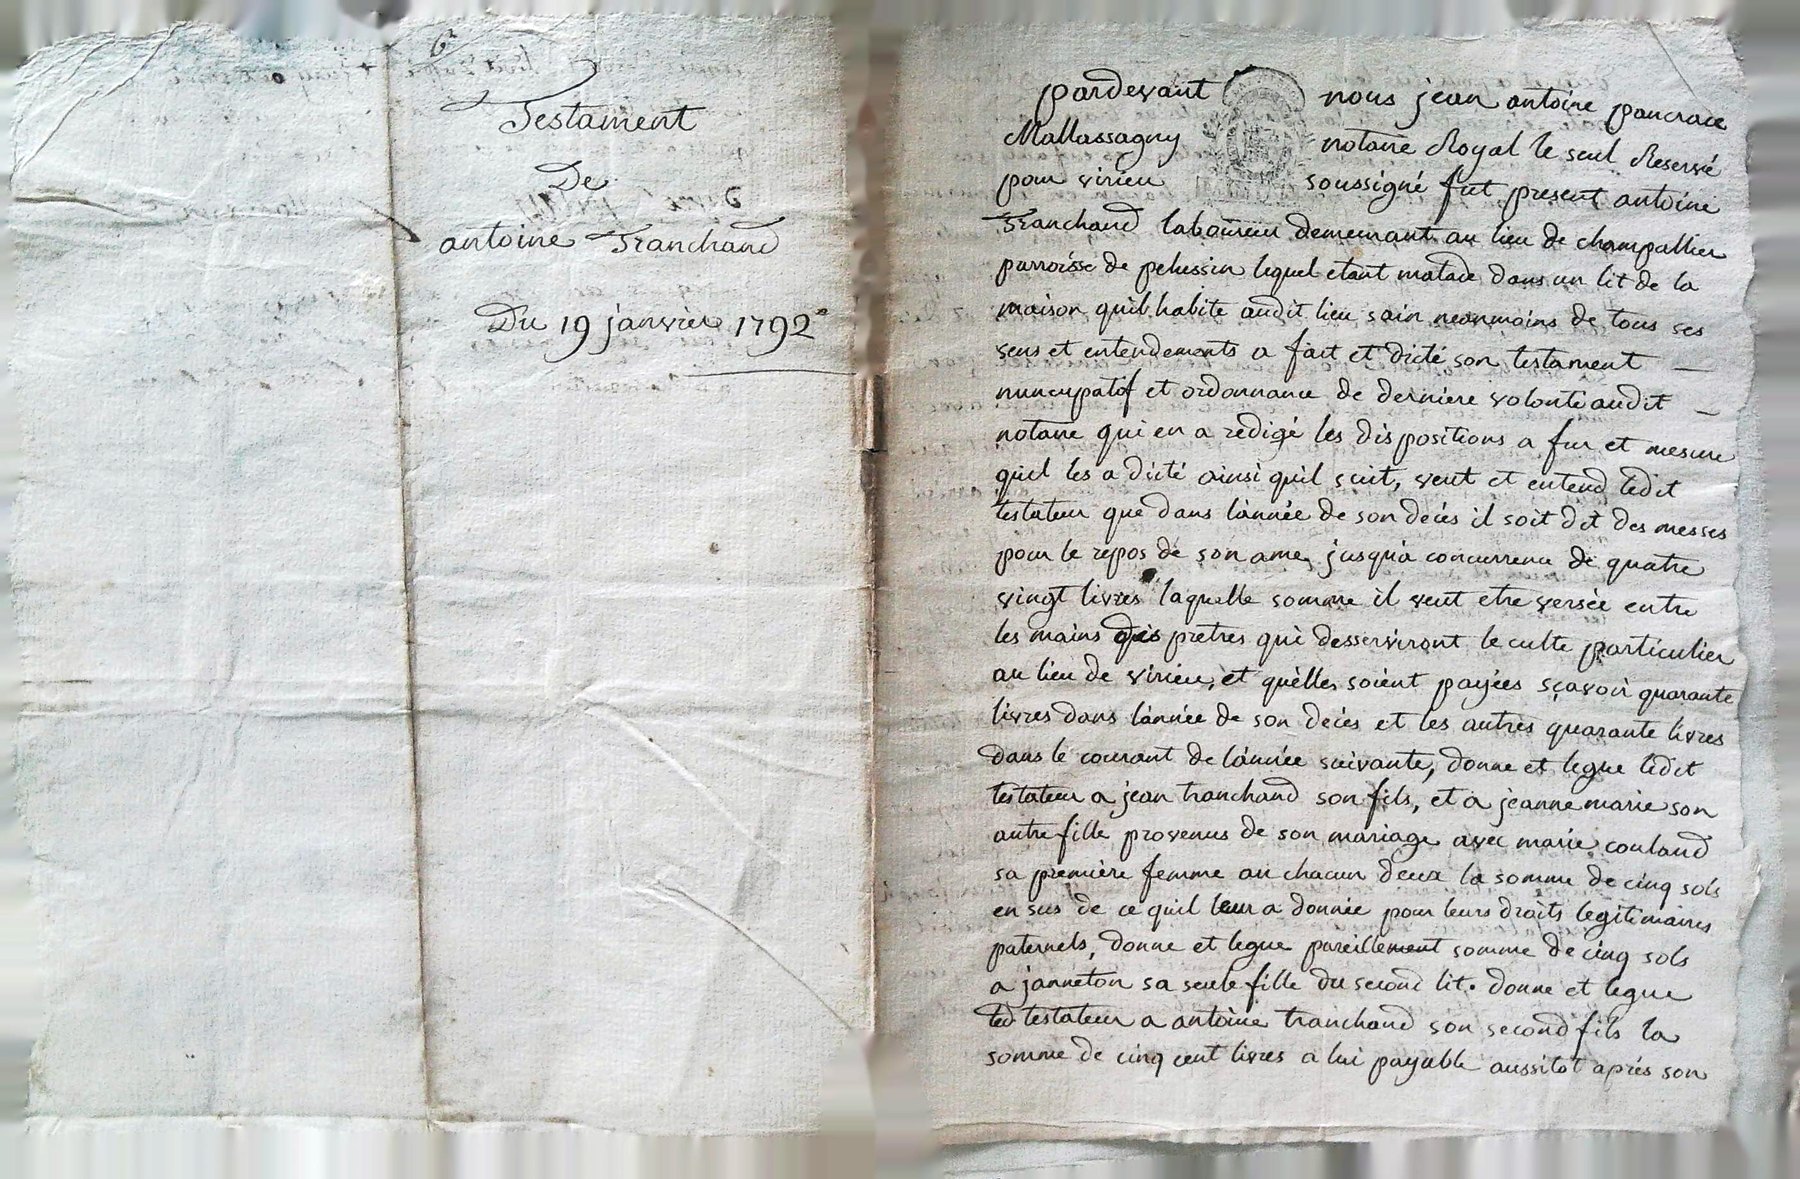 Testament
De
antoine Tranchand
Du 19 janvier 1792
pardevant nous jean antoine pancrace
Mallassagny notaire Royal le seul Reservé
pour virieu soussigné fut present antoine
Tranchand laboureur demeurant au lieu de champallier
parroisse de pelussin lequel etant malade dans un lit de la
maison quil habite audit lieu sain neanmoins de tous ses
sens et entendements a fait et dicté son testament
nuncupatif et ordonnance de derniere volonté audit
notaire qui en a redigé les dispositions a fur et mesure
quil les a dicté ainsi quil suit, veut et entend ledit
testateur que dans l'année de son decés il soit dit des messes
pour le repos de son ame jusqu'a concurrence de quatre
vingt livres laquelle somme il veut etre versée entre
les mains des pretres qui desserviront le culte particulier
au lieu de virieu, et qu'elles soient payées sçavoir quarante
livres dans l'année de son decés et les autres quarante livres
dans le courant de l'année suivante, donne et legue ledit
testateur a jean tranchand son fils, et a jeanne marie son
autre fille provenus de son mariage avec marie couland
sa première femme au chacun deux la somme de cinq sols
en sus de ce quil leur a donnée pour leurs droits legitimaires
paternels, donne et legue pareillement somme de cinq sols
a janneton sa seule fille du second lit. donne et legue
led testateur a antoine tranchand son second fils la
somme de cinq cent livres a lui payable aussitot aprés son